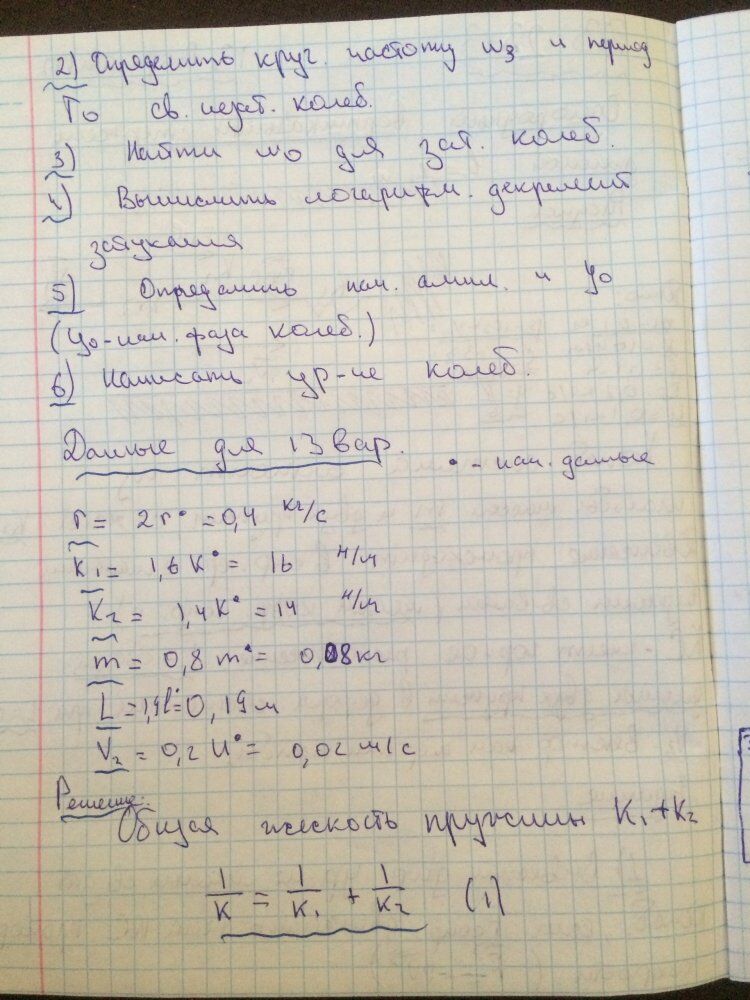 2) Определить круг. частоту ω3 и период
T0 св. незат. колеб.
3) Найти ω0 для зат. колеб.
4) Вычислить логарифм. декремент
затухания
5) Определить нач. ампл. и φ0
(φ0-нач. фаза колеб.)
6) Написать ур-ие колеб.
Данные для 13 вар.
• - нач. данные
r = 2r° = 0,4 кг/с
K1 = 1,6K° = 16 Н/м
K2 = 1,4K° = 14 Н/м
m = 0,8m° = 0,08кг
L = 1,9l° = 0,19м
V2 = 0,2U° = 0,02 м/с
Решение:
Общая жескость пружины K1+K2
1/K = 1/K1 + 1/K2 (1)